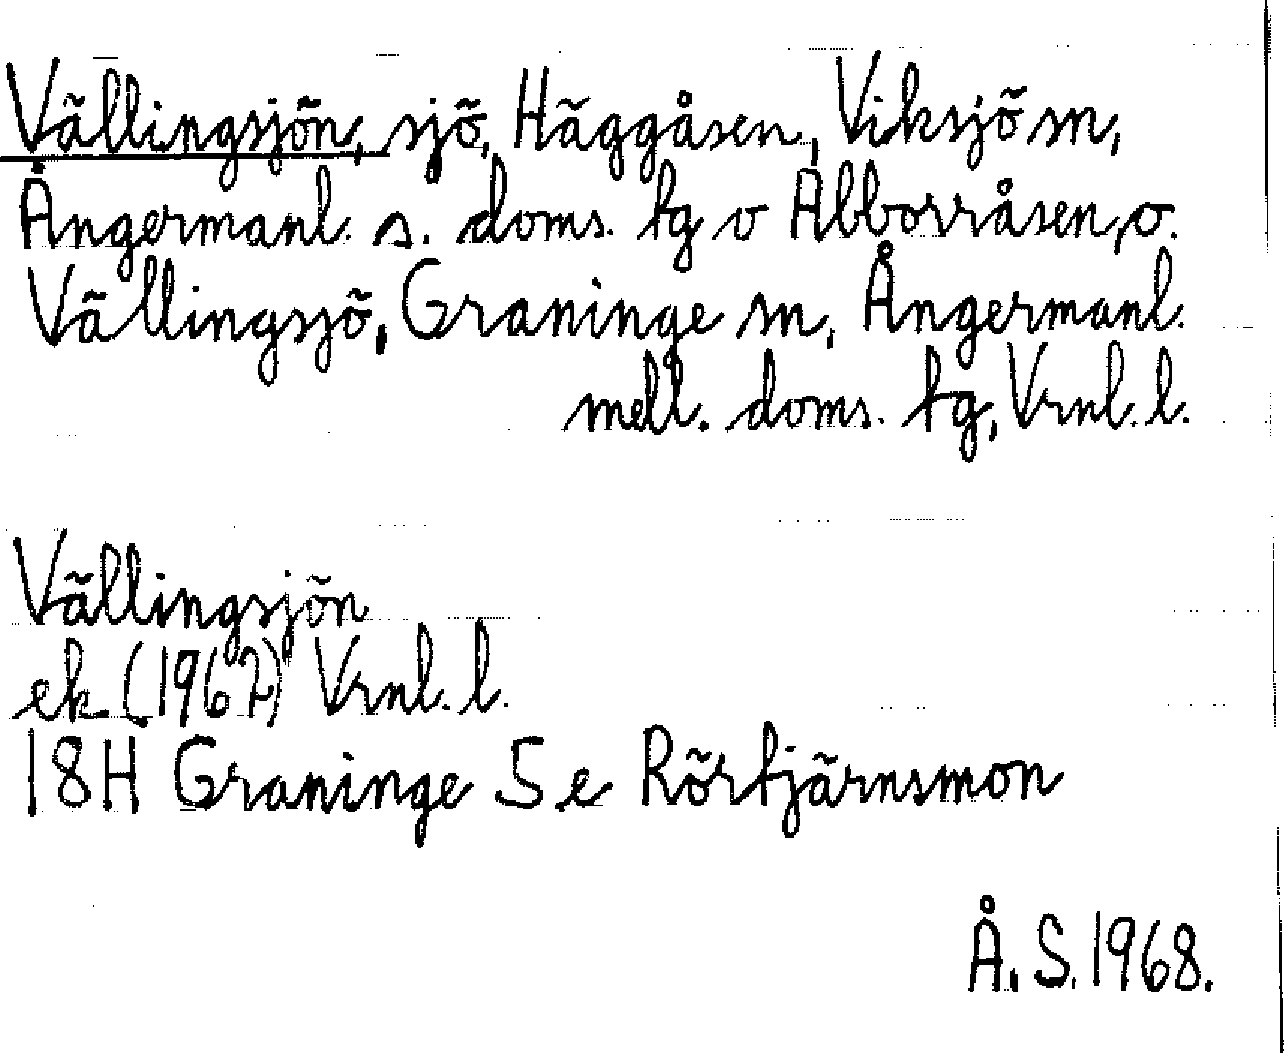 Vällingsjön, sjö, Häggåsen, Viksjö sn,
Ångermanl. s. doms. tg o Abborråsen, o.
Vällingsjö, Graninge sn, Ångermanl.
mell. doms. tg, Vrnl. l.
Vällingsjön
ek (1967) Vrnl. l.
18H Graninge 5 e Rörtjärnsmon
Å. S. 1968.